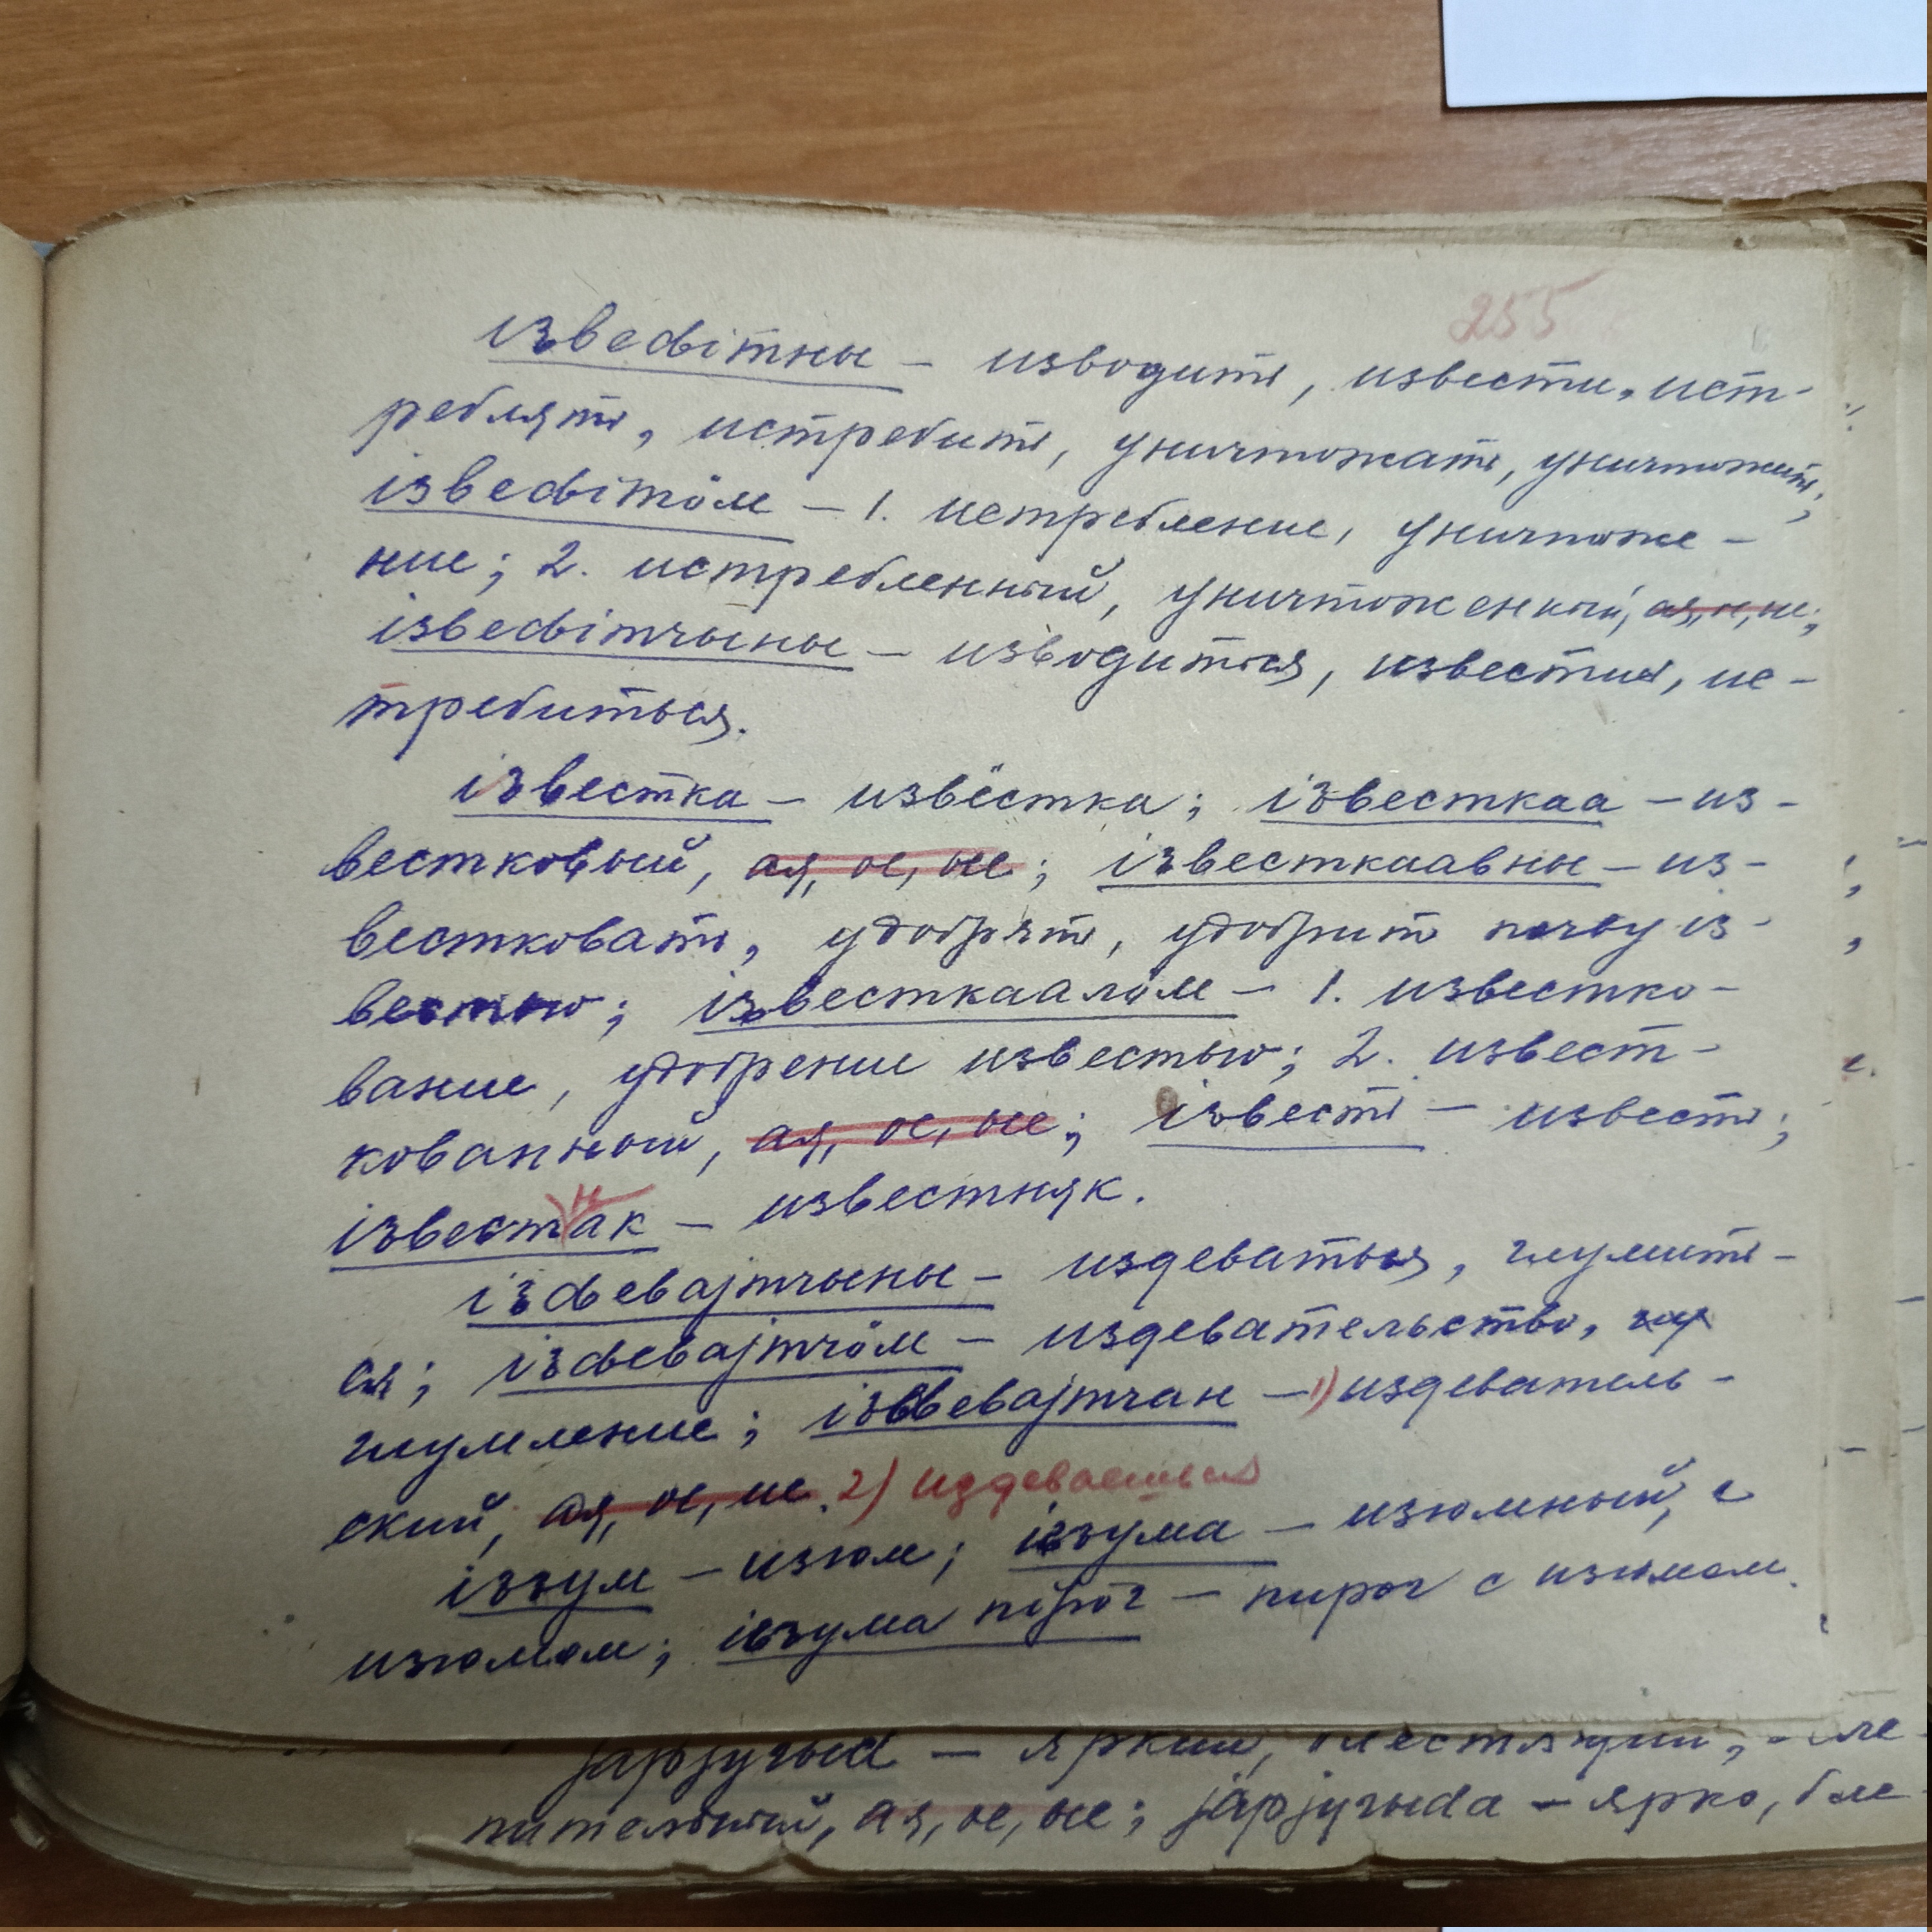 255
ізвеԁітны – изводить, извести, ист-
реблять, истребить, уничтожать, уничтожить;
ізвеԁітӧм – 1. истребление, уничтоже-
ние; 2. истребленный, уничтоженный, ая, ое, ые;
ізвеԁітчыны – изводиться, известись, ис-
требиться.
ізвестка – извёстка; ізвесткаа – из-
вестковый, ая, ое, ые; ізвесткаавны – из-
вестковать, удобрять, удобрить почву из-
вестью; ізвесткаалӧм – 1. известко-
вание, удобрение известью; 2. извест-
кованный, ая, ое, ые; ізвесть – известь;
ізвестнак – известняк.
ізԁевајтчыны – издеваться, глумить-
ся; ізԁевајтчӧм – издевательство,
глумление; ізԁевајтчан – 1) издеватель-
ский, ая, ое, ие. 2) издеваться
ізјум – изюм; ізјума – изюмный, с
изюмом; ізјума пірӧг – пирог с изюмом.
јарјугыԁ – яркий, блестящий,
пительный, ая, ое, ые; јарјугыԁа – ярко, бле